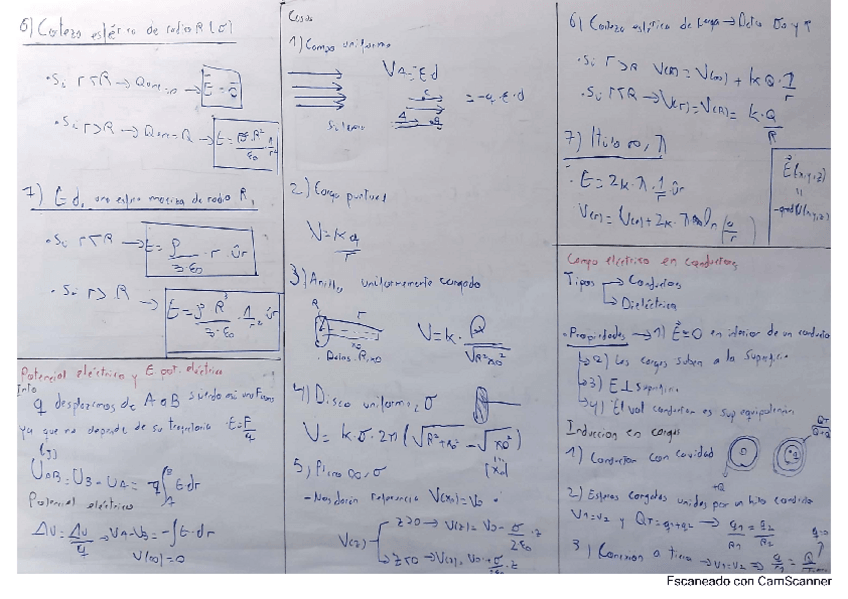 6) Corteza esférica de radio R (σ)
• Si r<R → Q → E = 0
• Si r>R → Q → E = σ·R²/ε₀ · 1/r²
7) E de una esfera maciza de radio R,
• Si r<R → E = ρ/3·ε₀ · r · ûr
• Si r>R → E = ρ R³/3·ε₀ · 1/r² ûr
Potencial eléctrico y E pot. eléctrica
Into
q desplazamos de A a B siendo
ya que no depende de su trayectoria E=F/q
(J)
UAB = UB - UA = q∫ E·dr
Potencial eléctrico
ΔV = ΔU/q → VA-VB = -∫E·dr
V(∞)=0
Casos
1) Campo uniforme
= -q·E·d
2) Carga puntual
V = k q/r
3) Anillo uniformemente cargado
R r
x₀
V = k· Q/√R²+x₀²
4) Disco uniforme, σ
V = k·σ·2π(√R²+x₀² - √x₀²)
|x₀|
5) Plano ∞, σ
- Nos darán referencia V(x₀) = V₀
V(z)
z>0 → V(z) = V₀ - σ/2ε₀ · z
z<0 → V(z) = V₀ + σ/2ε₀ · z
6) Corteza esférica de carga →
• Si r>R V(r) = V(∞) + kQ·1/r
• Si r<R → V(r) = V(R) = k·Q/R
7) Hilo ∞, λ
• E = 2k·λ·1/r ûr
E(x,y,z)
=
-grad V(x,y,z)
Campo eléctrico en conductores
Tipos → Conductores
→ Dieléctrica
• Propiedades → 1) E=0 en interior de un conductor
→ 2) Las cargas suben a la superficie
→ 3) E⊥ superficie
→ 4) El vol conductor es sup equipotencial
Induccion en cargas
1) Conductor con cavidad
+Q
2) Esferas cargadas unidas por un hilo conductor
V₁=V₂ y QT=q₁+q₂ → q₁/R₁ = q₂/R₂
3) Conexion a tierra → V₁=V₂ ⇒
Escaneado con CamScanner